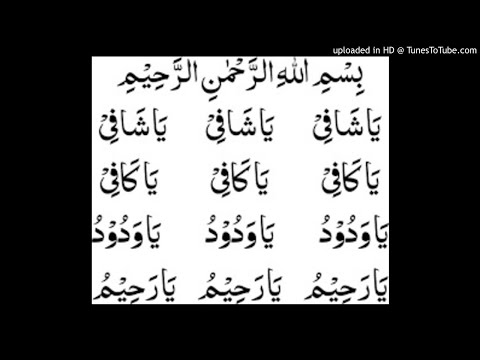 uploaded in HD @ TunesToTube.com
بِسْمِ اللهِ الرَّحْمٰنِ الرَّحِيْمِ
يَا شَافِيْ يَا شَافِيْ يَا شَافِيْ
يَا كَافِيْ يَا كَافِيْ يَا كَافِيْ
يَا وَدُوْدُ يَا وَدُوْدُ يَا وَدُوْدُ
يَا رَحِيْمُ يَا رَحِيْمُ يَا رَحِيْمُ